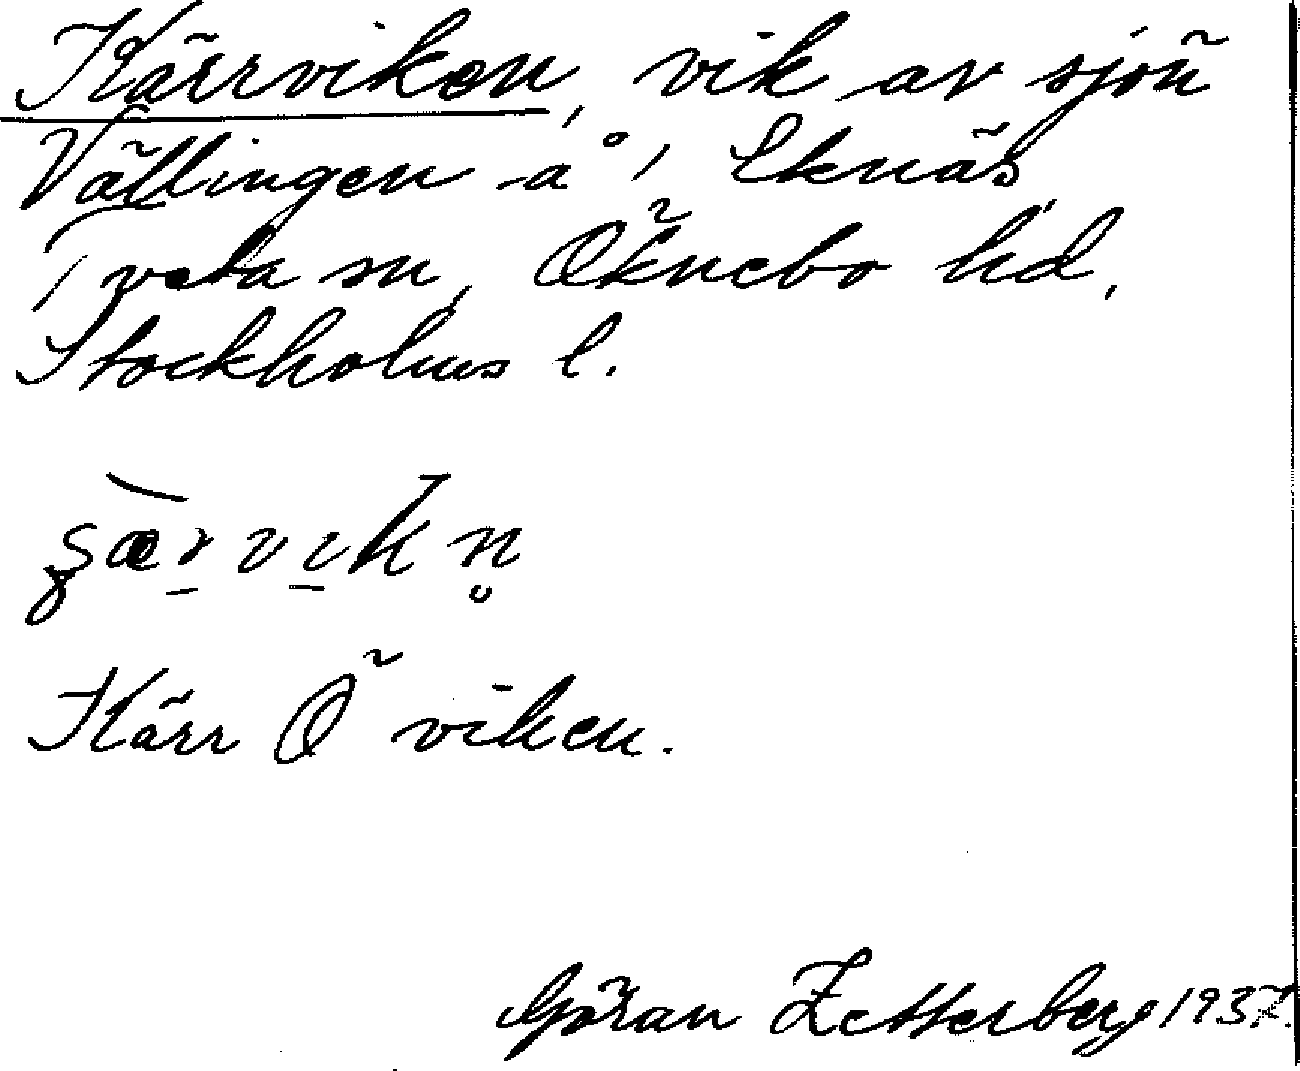 Kärrviken, vik av sjön
Vällingen å, Eknäs
Tveta sn, Öknebo hd,
Stockholms l.
Kärr Ö viken.
Göran Zetterberg 1937.